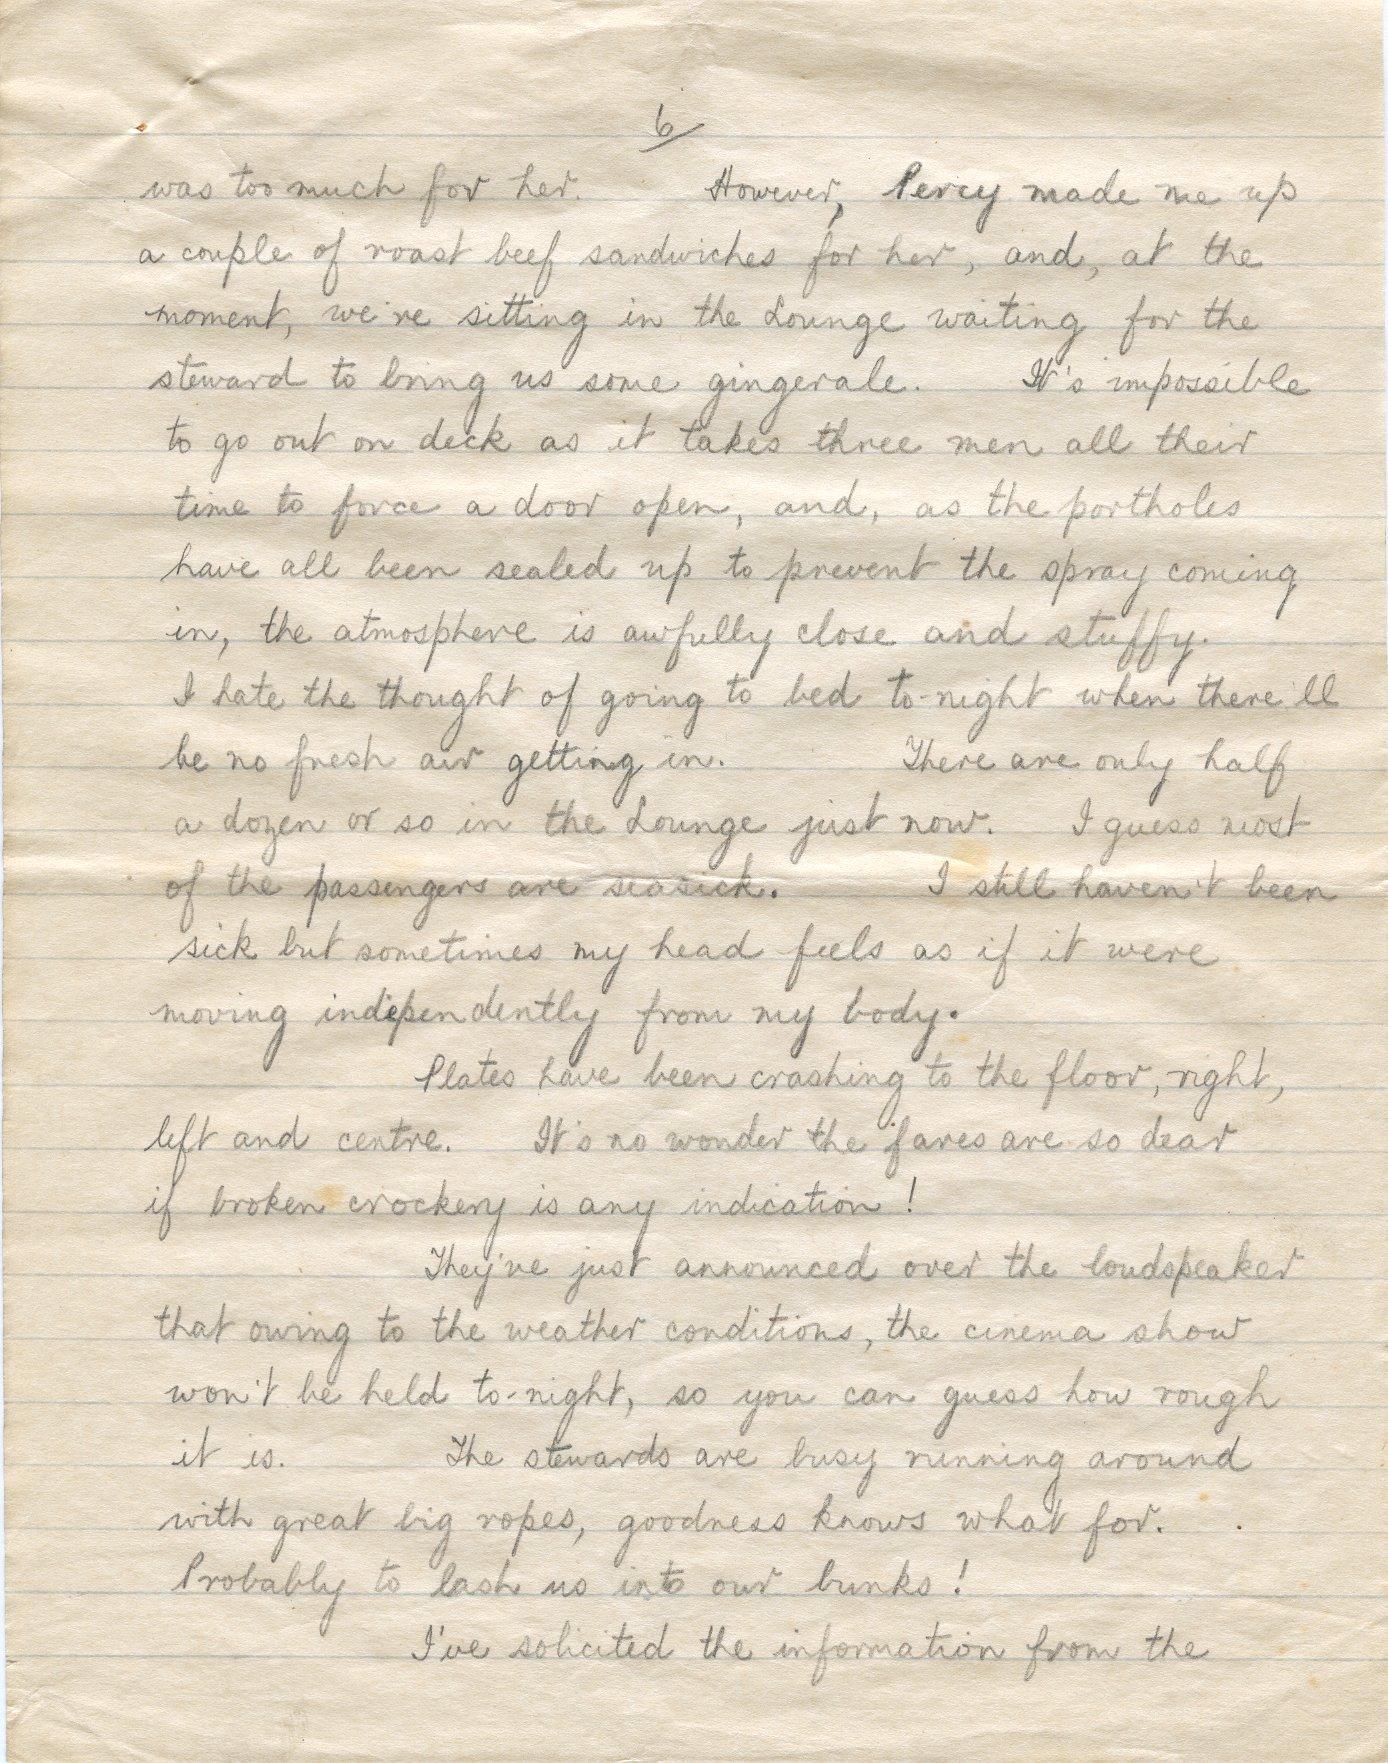 6
was too much for her. However, Percy made me up
a couple of roast beef sandwiches for her, and, at the
moment, we're sitting in the Lounge waiting for the
steward to bring us some gingerale. It's impossible
to go out on deck as it takes three men all their
time to force a door open, and, as the portholes
have all been sealed up to prevent the spray coming
in, the atmosphere is awfully close and stuffy.
I hate the thought of going to bed to-night when there'll
be no fresh air getting in. There are only half
a dozen or so in the Lounge just now. I guess most
of the passengers are seasick. I still haven't been
sick but sometimes my head feels as if it were
moving independently from my body.
Plates have been crashing to the floor, right,
left and centre. It's no wonder the fares are so dear
if broken crockery is any indication!
They've just announced over the loudspeaker
that owing to the weather conditions, the cinema show
won't be held to-night, so you can guess how rough
it is. The stewards are busy running around
with great big ropes, goodness knows what for.
Probably to lash us into our bunks!
I've solicited the information from the